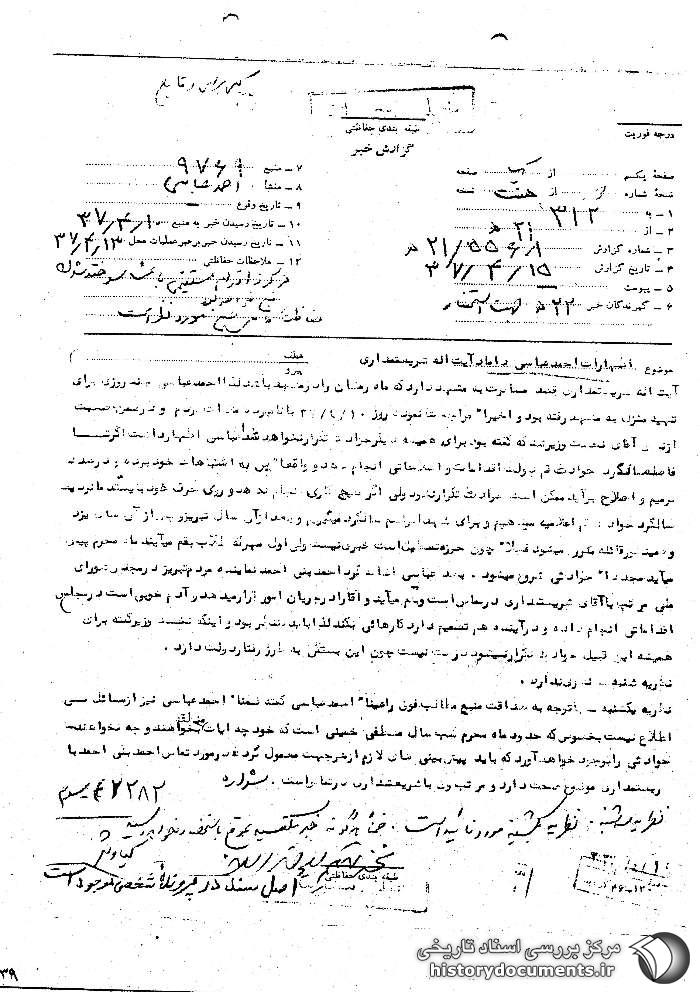 طبقه بندی حفاظتی
گزارش خبر
درجه فوریت
صفحه یکم از یک صفحه
نسخه شماره از هشت نسخه
۱ - به ۳۱۲
۲ - از ۲۱ ﻫ
۳ - شماره گزارش ۲۱/۵۵۶۱ ﻫ
۴ - تاریخ گزارش ۳۷/۴/۱۵
۵ - پیوست
۶ - گیرندگان خبر
۷ - منبع ۹۷۶۹
۸ - منشا احمد عباسی
۹ - تاریخ وقوع
۱۰ - تاریخ رسیدن خبر به منبع ۳۷/۴/۱۰
۱۱ - تاریخ رسیدن خبر برهبر عملیات محل ۳۷/۴/۱۳
۱۲ - ملاحظات حفاظتی
هرگونه اقدام مستقیمی باعث سوخته شدن
منبع خواهد شد
حفاظت منبع مورد نظر است
موضوع اظهارات احمد عباسی داماد آیت اله شریعتمداری
عطف
پیرو
آیت اله شریعتمداری قصد مسافرت به مشهد دارد که ماه رمضان را در مشهد باشد لذا احمد عباسی چند روزی برای
تهیه منزل به مشهد رفته بود و اخیرا" مراجعت نموده روز
آقای نخست وزیر که گفته بود برای همیشه دیگر حوادث تکرار نخواهد شد عباسی اظهار داشت اگر تا
فاصله سالگرد حوادث قم دولت اقدامات و اصلاحاتی انجام دهد و واقعا" پی به اشتباهات خود برده و درصدد
ترمیم و اصلاح برآید ممکن است حوادث تکرار نشود ولی اگر هیچ کاری انجام ندهد و روی حرف خود بایستد
سالگرد حوادث قم اعلامیه میدهیم و برای شهدا مراسم سالگرد میگیریم و بعد از آن سال تبریز و بعد از آن سال یزد
و همینطور قائله تکرر میشود فعلا" چون حوزه تعطیل است خبری نیست ولی اول مهر که طلاب بقم میآیند ماه محرم پیش
میآید مجددا" حوادثی شروع میشود . بعد عباسی اضافه کرد احمد بنی احمد نماینده مردم تبریز در مجلس شورای
ملی مرتب با آقای شریعتمداری در تماس است و بقم میآید و آقا را در جریان امور قرار میدهد آدم خوبی است در مجلس
اقداماتی انجام داده و در آینده هم تصمیم دارد کارهائی بکند لذا باید منتظر بود و اینکه نخست وزیر گفته برای
همیشه این قبیل حوادث تکرار نمیشود درست نیست چون این بستگی به طرز رفتار دولت دارد .
نظریه شنبه - نظری ندارد .
نظریه یکشنبه - باتوجه به صداقت منبع مطالب فوق را عینا" احمد عباسی گفته ضمنا" احمد عباسی نیز از مسائل بی
اطلاع نیست بخصوص که حدود ماه محرم شب سال مصطفی خمینی است که خود چه
حوادثی را بوجود خواهد آورد که باید پیش بینی های لازم از هر جهت معمول گردد در مورد تماس احمد بنی احمد با
شریعتمداری موضوع صحت دارد و مرتب با شریعتمداری در تماس است .
نظریه سه شنبه : نظریه یکشنبه مورد تائید است .
طبقه بندی حفاظتی
اصل سند در پرونده شخصی موجود است
۳۹
مرکز بررسی اسناد تاریخی
historydocuments.ir